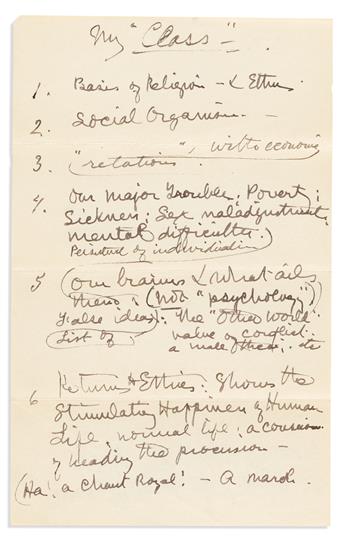 My "Class" -
1. Basis of Religion - & Ethics
2. Social Organism. -
3. "relations", with economic
4. Our major trouble; Poverty;
Sickness; Sex maladjustment;
mental difficulties.
of individualism
5 (Our brains & what ails
them; (Not "psychology")
False ideas): The "other world"
(List of) value of conflict:
a male; etc
6 Returns to Ethics: Shows the
Stimulating Happiness of Human
Life, normal life; a
of heading the procession -
(Ha! a Chant Royal! - A march.